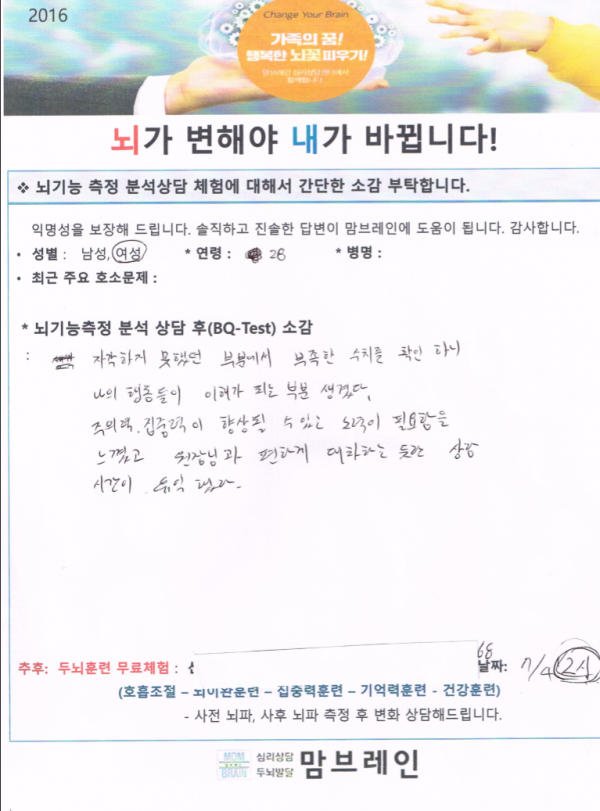 2016
Change Your Brain
가족의 꿈!
행복한 뇌꽃 피우기!
뇌가 변해야 내가 바뀝니다!
❖ 뇌기능 측정 분석상담 체험에 대해서 간단한 소감 부탁합니다.
익명성을 보장해 드립니다. 솔직하고 진솔한 답변이 맘브레인에 도움이 됩니다. 감사합니다.
• 성별 : 남성, 여성 * 연령 : 28 * 병명 :
• 최근 주요 호소문제 :
* 뇌기능측정 분석 상담 후(BQ-Test) 소감
: 자각하지 못했던 부분에서 부족한 수치를 확인 하니
나의 행동들이 이해가 되는 부분 생겼다.
주의력.집중력이 향상될 수 있는 노력이 필요함을
느꼈고 원장님과 편하게 대화하는 듯한 상담
시간이 유익 했다.
추후: 두뇌훈련 무료체험 : 날짜: 7/4 2시
(호흡조절 – 뇌이완훈련 – 집중력훈련 – 기억력훈련 - 건강훈련)
- 사전 뇌파, 사후 뇌파 측정 후 변화 상담해드립니다.
MOM BRAIN 심리상담 두뇌발달 맘브레인